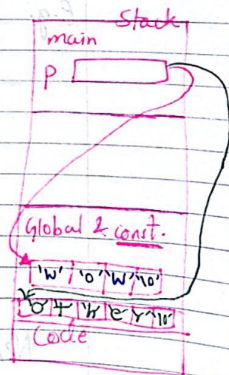 Stack
main
P
Global & const.
'W' 'O' 'W' '\0'
O t h e r '\0'
Code